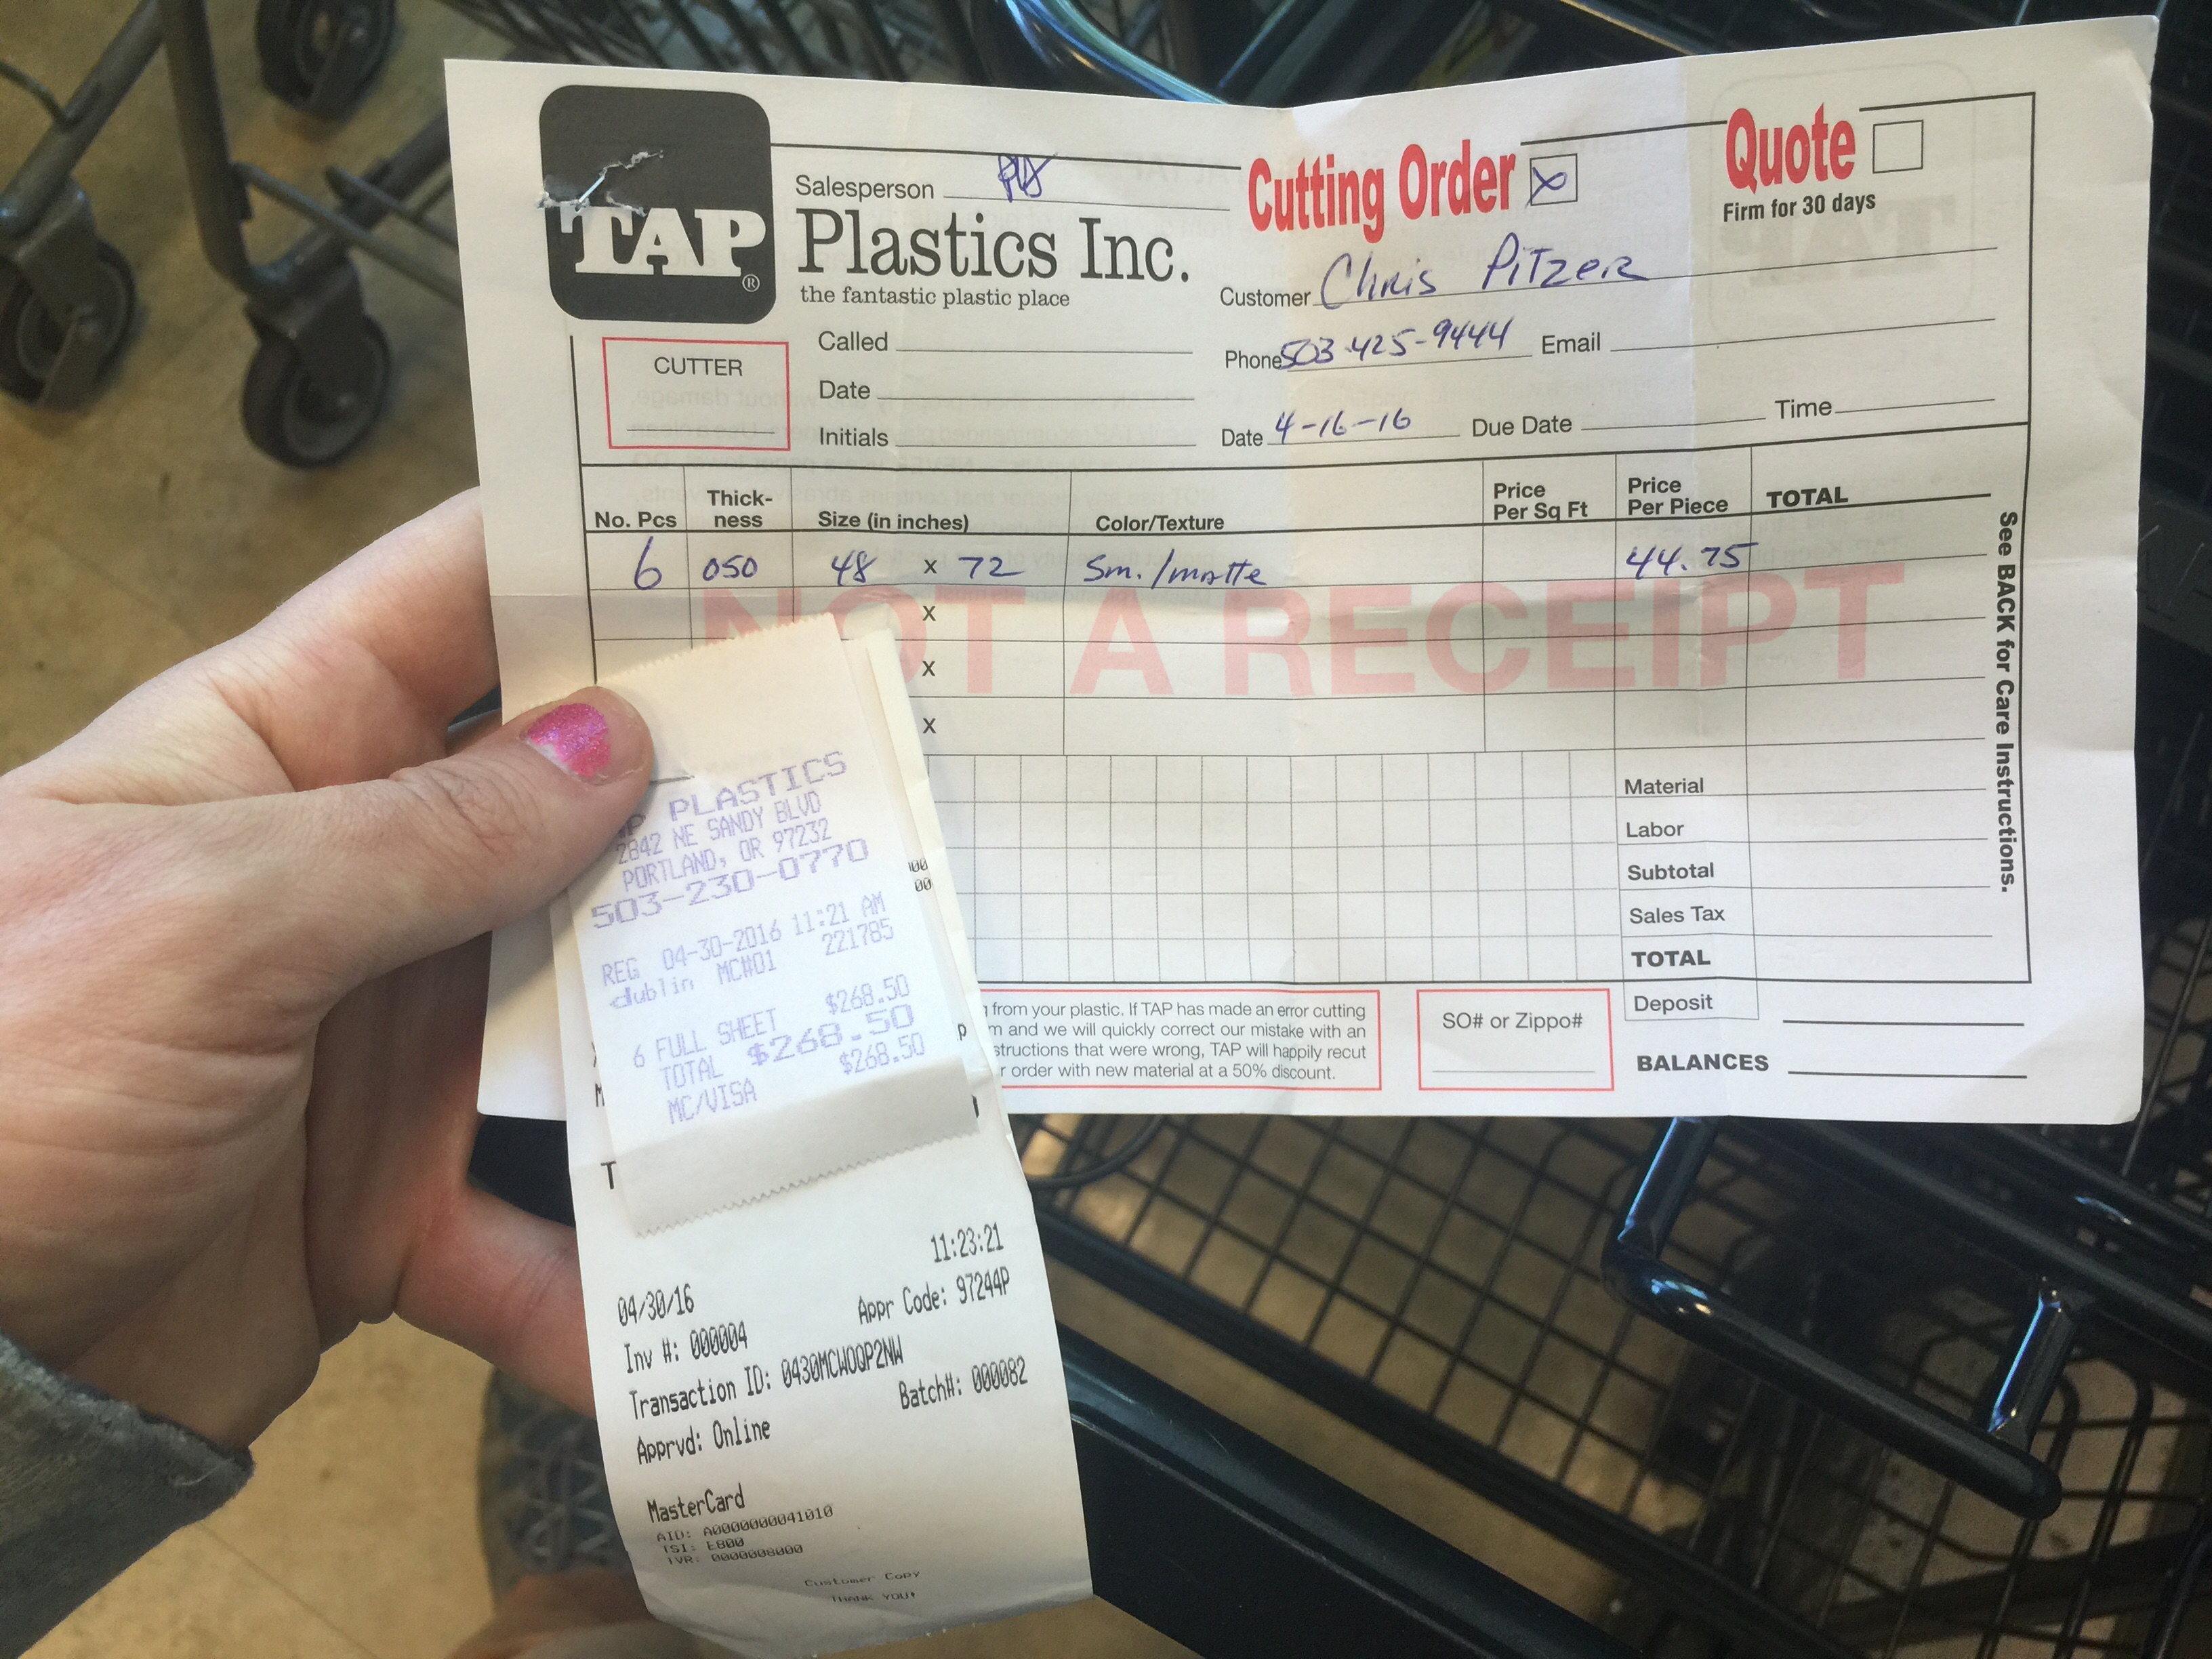 TAP
®
Plastics Inc.
the fantastic plastic place
Salesperson
Cutting Order
Quote
Firm for 30 days
Customer Chris Pitzer
CUTTER
Called
Phone 503 425-9444 Email
Date
Initials
Date 4-16-16 Due Date Time
No. Pcs Thick-ness Size (in inches) Color/Texture Price Per Sq Ft Price Per Piece TOTAL
6 050 48 x 72 Sm./matte 44.75
x
x
x
NOT A RECEIPT
Material
Labor
Subtotal
Sales Tax
TOTAL
Deposit
BALANCES
SO# or Zippo#
from your plastic. If TAP has made an error cutting
m and we will quickly correct our mistake with an
structions that were wrong, TAP will happily recut
r order with new material at a 50% discount.
See BACK for Care Instructions.
P PLASTICS
2842 NE SANDY BLVD
PORTLAND, OR 97232
503-230-0770
REG 04-30-2016 11:21 AM
dublin MC#01 221785
6 FULL SHEET $268.50
TOTAL $268.50
MC/VISA $268.50
04/30/16 11:23:21
Inv #: 000004 Appr Code: 97244P
Transaction ID: 0430MCWOQP2NW
Apprvd: Online Batch#: 000082
MasterCard
AID: A0000000041010
TSI: E800
TVR: 0000008000
Customer Copy
THANK YOU!